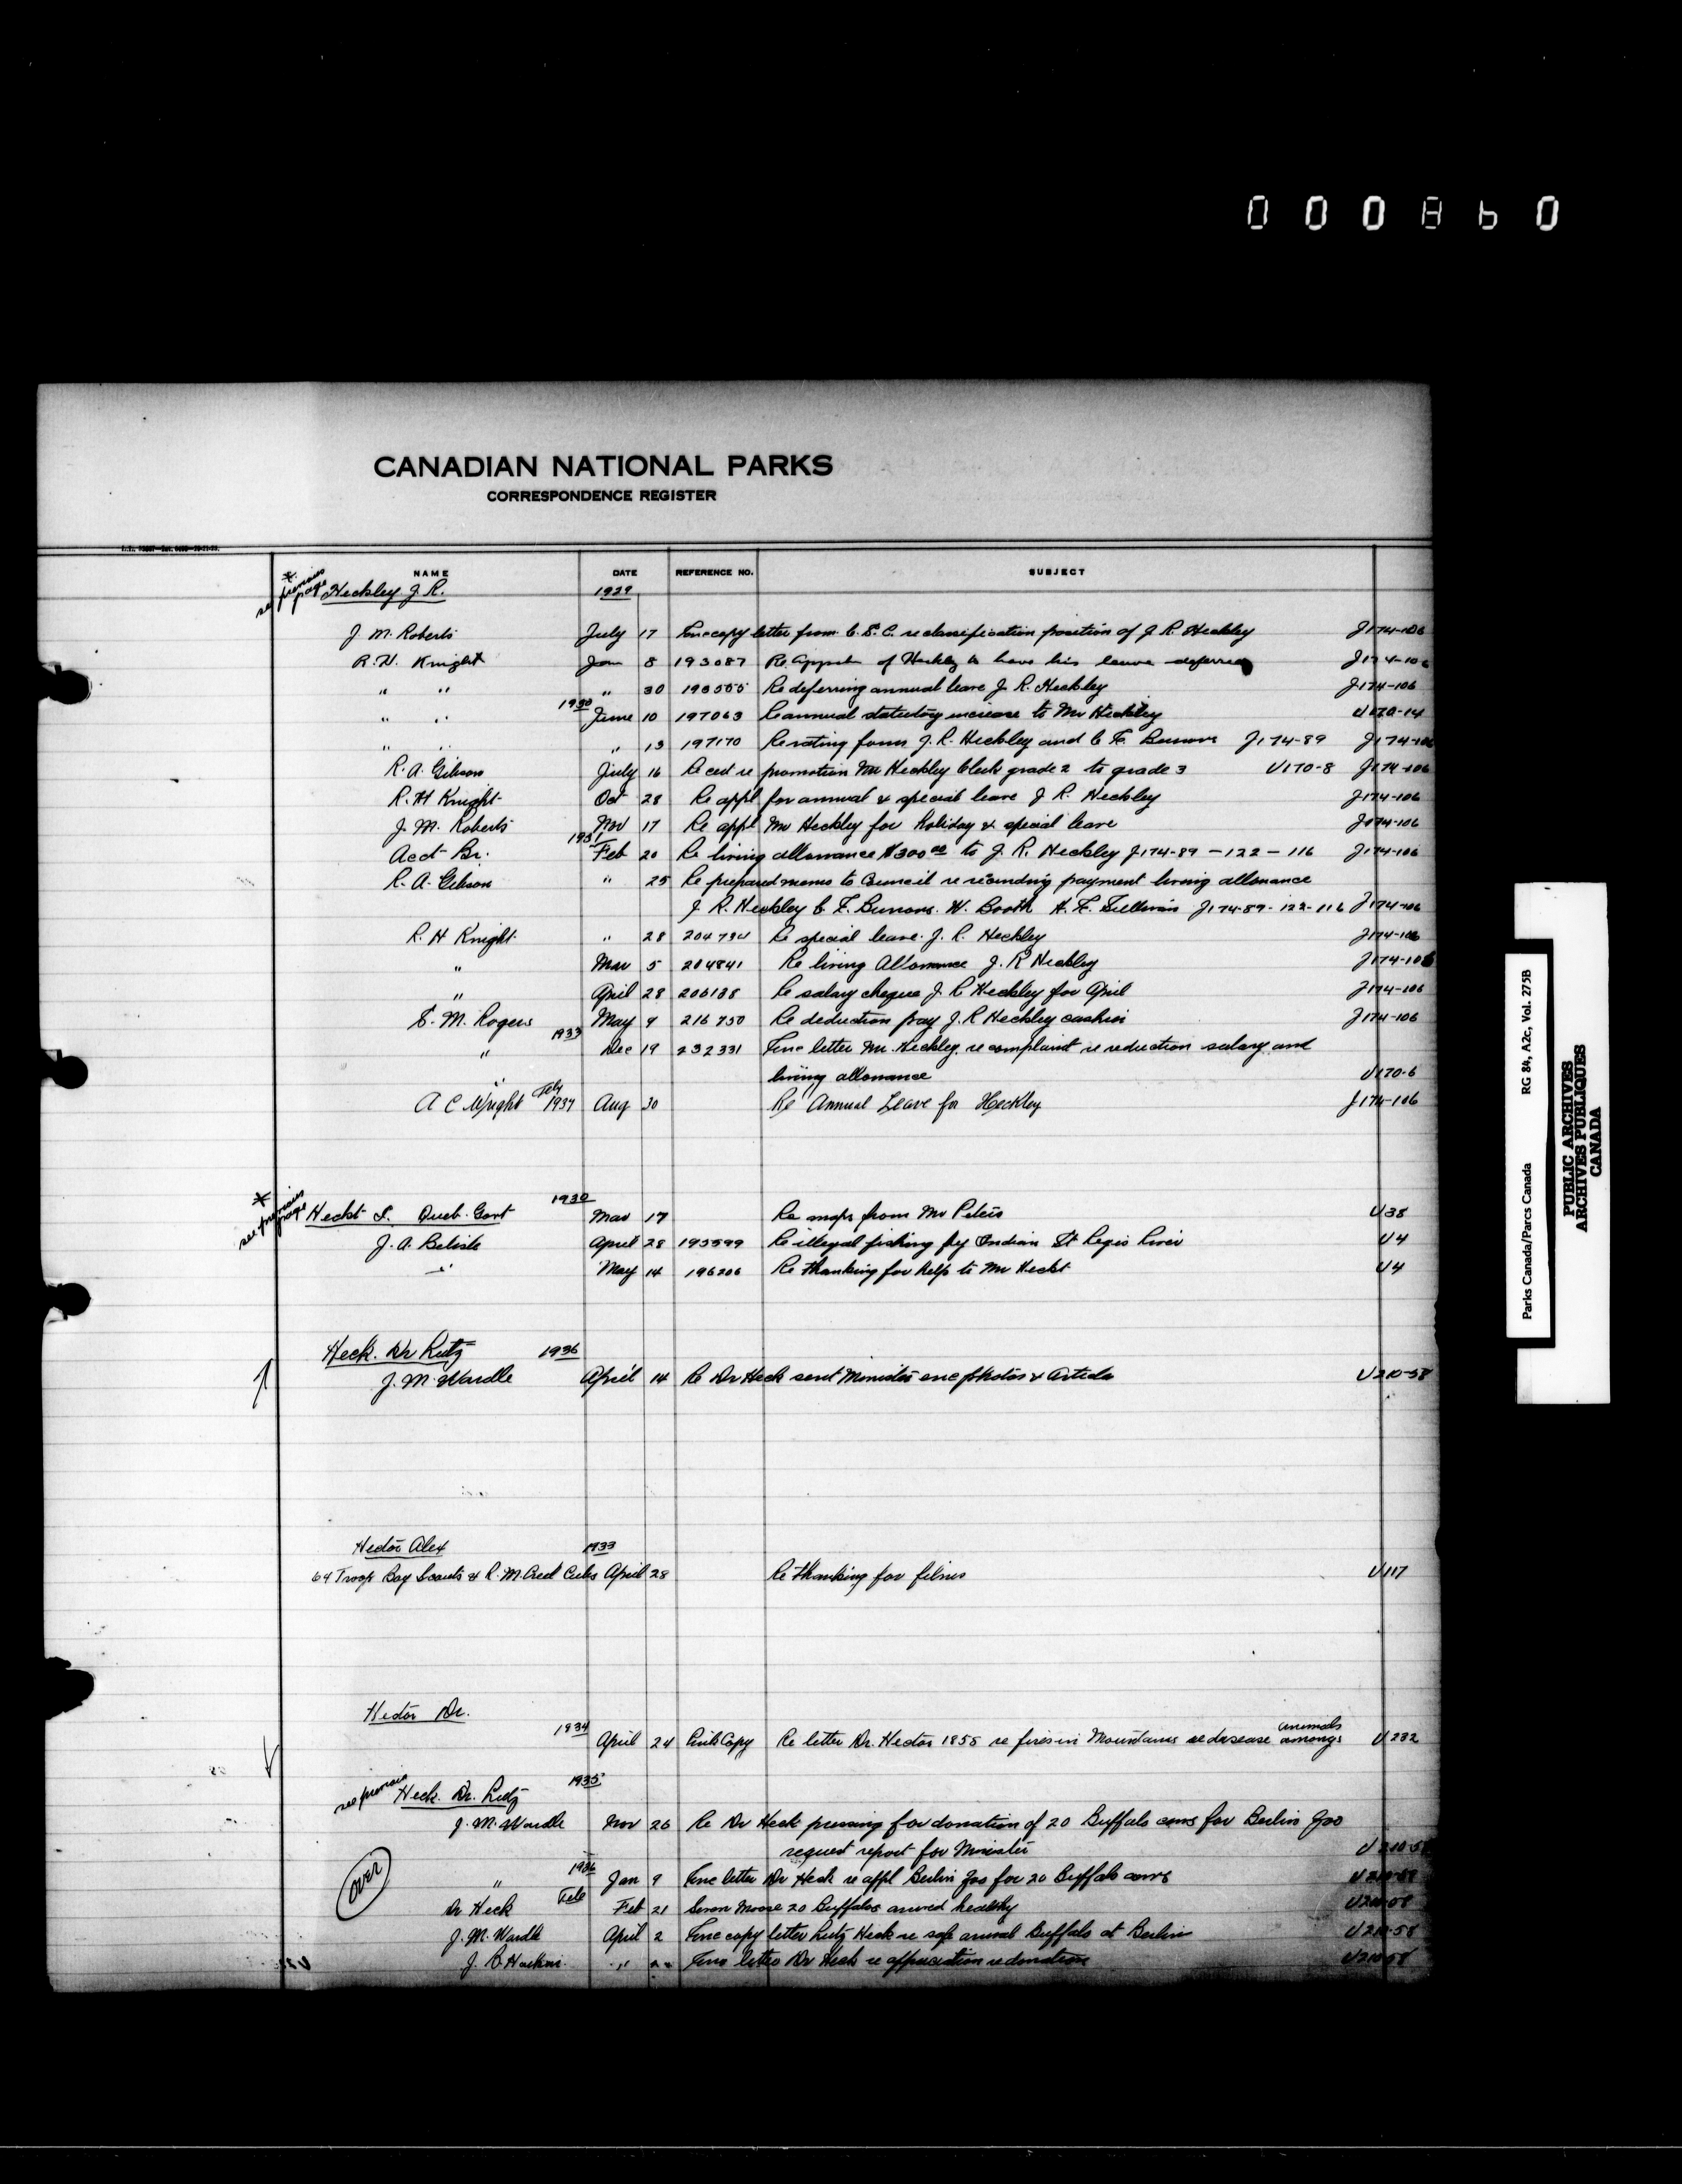 CANADIAN NATIONAL PARKS
CORRESPONDENCE REGISTER
NAME DATE REFERENCE NO. SUBJECT
* see previous page Heckley J. R. 1929
J. M. Roberts July 17 Enc copy letter from C. S. C. re classification position of J. R. Heckley J174-106
R. H. Knight Jan 8 193087 Re Appctn of Heckley to have his leave deferred J174-106
" " " 30 193555 Re deferring annual leave J. R. Heckley J174-106
" " 1930 June 10 197063 Re annual statutory increase to Mr Heckley U170-14
" " " 13 197170 Re rating forms J. R. Heckley and C. F. J174-89 J174-106
R. A. Gibson July 16 Re promotion Mr Heckley Clerk grade 2 to grade 3 U170-8 J174-106
R. H Knight Oct 28 Re appl for annual & special leave J R. Heckley J174-106
J. M. Roberts Nov 17 Re appl Mr Heckley for holiday & special leave J174-106
Acct Br. 1931 Feb 20 Re living allowance $300 00 to J. R. Heckley J174-89 - 122 - 116 J174-106
R. A. Gibson " 25 Re prepared memo to Council re rescinding payment living allowance
J. R. Heckley C. F. W. Booth H. F. Sullivan J174-89-122-116 J174-106
R. H Knight " 28 Re special leave J. R. Heckley J174-106
" Mar 5 204841 Re living Allowance J. R Heckley J174-106
" April 28 206138 Re salary cheque J. R Heckley for April J174-106
S. M. Rogers May 9 216750 Re deduction pay J. R Heckley cashier J174-106
" 1933 Dec 19 232331 Enc letter Mr. Heckley re complaint re reduction salary and
living allowance U170-6
A C Wright 1937 Aug 30 Re Annual Leave for Heckley J174-106
* see previous page Heckt S. Queb. Govt 1930 Mar 17 Re maps from Mr Peters U38
J. A. Belisle April 28 195599 Re illegal fishing by Indian St Regis River U4
" May 14 196206 Re thanking for help to Mr Heckt U4
Heck. Dr Lutz 1936
J. M. Wardle April 14 Re Dr Heck sent Minister enc photos & Article U210-58
Hector Alex 1933
64 Troop Boy Scouts & Cubs April 28 Re thanking for films U117
Hector Dr.
1934 April 24 Pink Copy Re letter Dr. Hector 1858 re fires in Mountains re disease amongst animals U232
see previous Heck. Dr. Lutz 1935
J. M. Wardle Nov 26 Re Dr Heck pressing for donation of 20 Buffalo cows for Berlin Zoo
request report for Minister U210-58
over " 1936 Jan 9 Enc letter Dr Heck re appl Berlin Zoo for 20 Buffalo cows U210-58
Dr Heck Feb Feb 21 Seven Moose 20 Buffalos arrived healthy U210-58
J. M. Wardle April 2 Enc copy letter Lutz Heck re safe arrival Buffalo at Berlin U210-58
J. B. Harkin " " Enc letter Dr Heck re appreciation re donation U210-58
000860
Parks Canada/Parcs Canada RG 84, A2c, Vol. 275B
PUBLIC ARCHIVES
ARCHIVES PUBLIQUES
CANADA